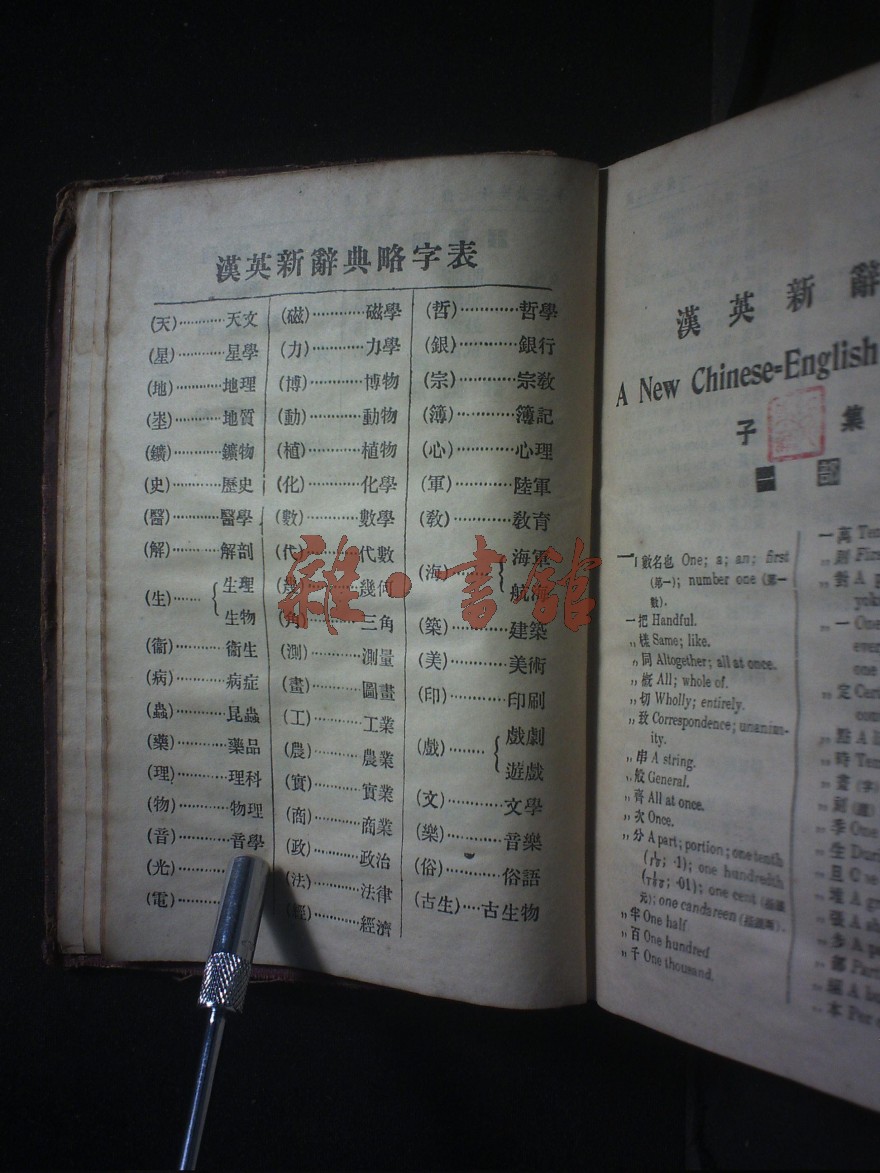 漢英新辭典略字表
(天)………天文
(星)………星學
(地)………地理
(垄)………地質
(鑛)………鑛物
(史)………歷史
(醫)………醫學
(解)………解剖
(生)……{生理
生物
(衞)………衞生
(病)………病症
(蟲)………昆蟲
(藥)………藥品
(理)………理科
(物)………物理
(音)………音學
(光)………
(電)………
(磁)………磁學
(力)………力學
(博)………博物
(動)………動物
(植)………植物
(化)………化學
(數)………數學
(代)………代數
(幾)………幾何
(角)………三角
(測)………測量
(畫)………圖畫
(工)………工業
(農)………農業
(實)………實業
(商)………商業
(政)………政治
(法)………法律
(經)………經濟
(哲)………哲學
(銀)………銀行
(宗)………宗教
(簿)………簿記
(心)………心理
(軍)………陸軍
(教)………教育
(海)………{海軍
航海
(築)………建築
(美)………美術
(印)………印刷
(戲)………{戲劇
遊戲
(文)………文學
(樂)………音樂
(俗)………俗語
(古生)…古生物
雜·書館
漢英新辭
A New Chinese=English
子集
一部
一 數名也 One; a; an; first
(第一); number one (第一
數).
一把 Handful.
〃樣 Same; like.
〃同 Altogether; all at once.
〃概 All; whole of.
〃切 Wholly; entirely.
〃致 Correspondence; unanim-
ity.
〃串 A string.
〃般 General.
〃齊 All at once.
〃次 Once.
〃分 A part; portion; one tenth
(1/10; ·1); one hundredth
(1/100; ·01); one cent
元); one candareen
〃半 One half
〃百 One hundred
〃千 One thousand.
一萬 Ten
〃則 Firs
〃對 A p
yoke
〃一 One
ever
one
〃定 Cert
〃點 A li
〃時 Tem
〃畫
〃刻
〃季 One
〃生 Duri
〃旦
〃堆 A
〃張 A sh
〃步 A p
〃部 Part
〃本 Per